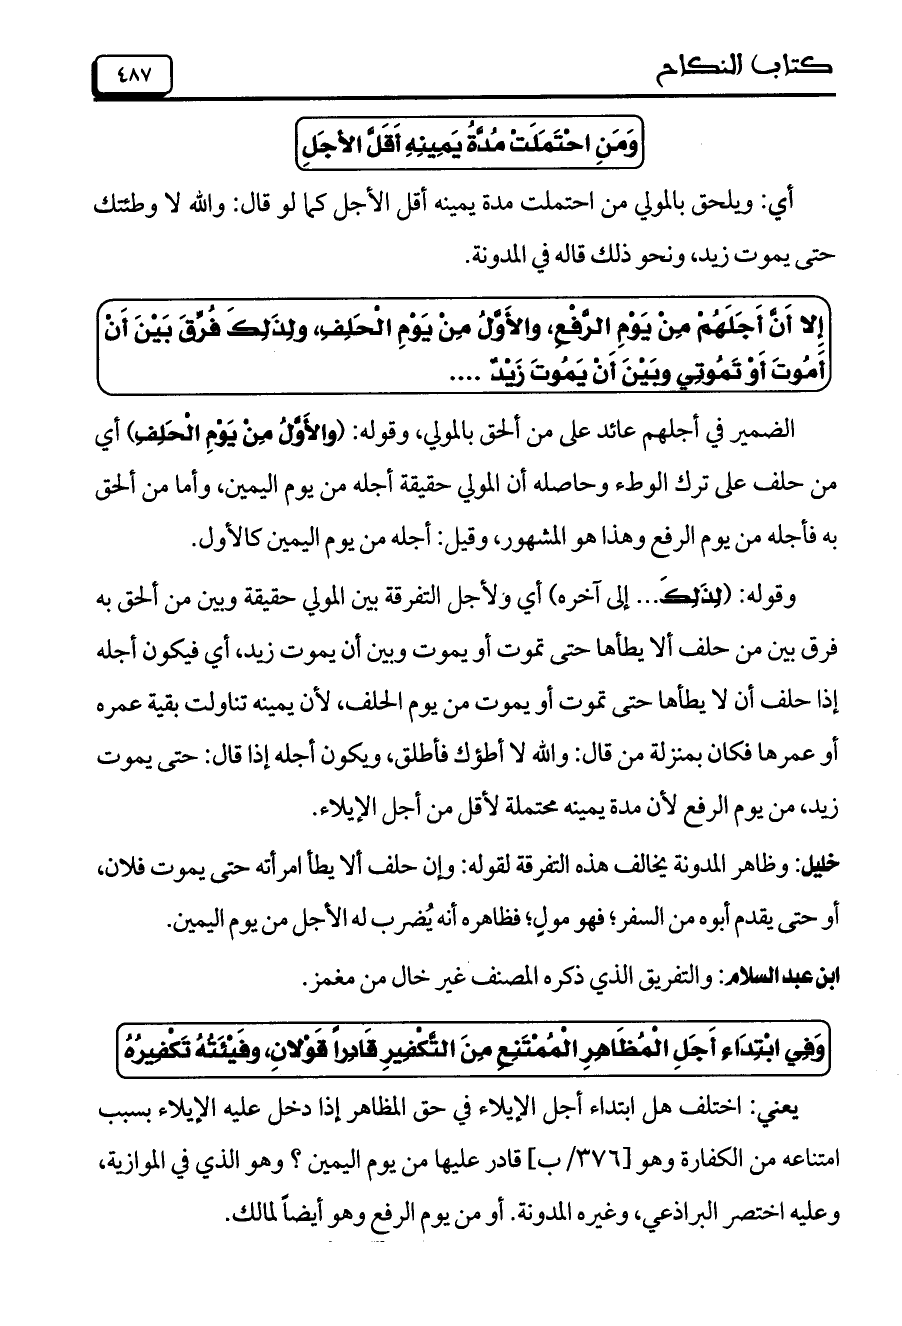 كتاب النكاح
٤٨٧
وَمَنِ احْتَمَلَتْ مُدَّةُ يَمِينِهِ أَقَلَّ الأَجَلِ
أي: ويلحق بالمولي من احتملت مدة يمينه أقل الأجل كما لو قال: والله لا وطئتك
حتى يموت زيد، ونحو ذلك قاله في المدونة.
إِلا أَنَّ أَجَلَهُمْ مِنْ يَوْمِ الرَّفْعِ، والأَوَّلُ مِنْ يَوْمِ الْحَلِفِ، ولِذَلِكَ فُرِّقَ بَيْنَ أَنْ
أَمُوتَ أَوْ تَمُوتِي وبَيْنَ أَنْ يَمُوتَ زَيْدٌ ....
الضمير في أجلهم عائد على من ألحق بالمولي، وقوله: (والأَوَّلُ مِنْ يَوْمِ الْحَلِفِ) أي
من حلف على ترك الوطء وحاصله أن المولي حقيقة أجله من يوم اليمين، وأما من ألحق
به فأجله من يوم الرفع وهذا هو المشهور، وقيل: أجله من يوم اليمين كالأول.
وقوله: (لِذَلِكَ... إلى آخره) أي ولأجل التفرقة بين المولي حقيقة وبين من ألحق به
فرق بين من حلف ألا يطأها حتى تموت أو يموت وبين أن يموت زيد، أي فيكون أجله
إذا حلف أن لا يطأها حتى تموت أو يموت من يوم الحلف، لأن يمينه تناولت بقية عمره
أو عمرها فكان بمنزلة من قال: والله لا أطؤك فأطلق، ويكون أجله إذا قال: حتى يموت
زيد، من يوم الرفع لأن مدة يمينه محتملة لأقل من أجل الإيلاء.
خليل: وظاهر المدونة يخالف هذه التفرقة لقوله: وإن حلف ألا يطأ امرأته حتى يموت فلان،
أو حتى يقدم أبوه من السفر؛ فهو مولٍ؛ فظاهره أنه يُضرب له الأجل من يوم اليمين.
ابن عبد السلام: والتفريق الذي ذكره المصنف غير خال من مغمز.
وَفِي ابْتِدَاءِ أَجَلِ الْمُظَاهِرِ الْمُمْتَنِعِ مِنَ التَّكْفِيرِ قَادِراً قَوْلانِ، وفَيْئَتُهُ تَكْفِيرُهُ
يعني: اختلف هل ابتداء أجل الإيلاء في حق المظاهر إذا دخل عليه الإيلاء بسبب
امتناعه من الكفارة وهو [٣٧٦/ ب] قادر عليها من يوم اليمين ؟ وهو الذي في الموازية،
وعليه اختصر البراذعي، وغيره المدونة. أو من يوم الرفع وهو أيضاً لمالك.